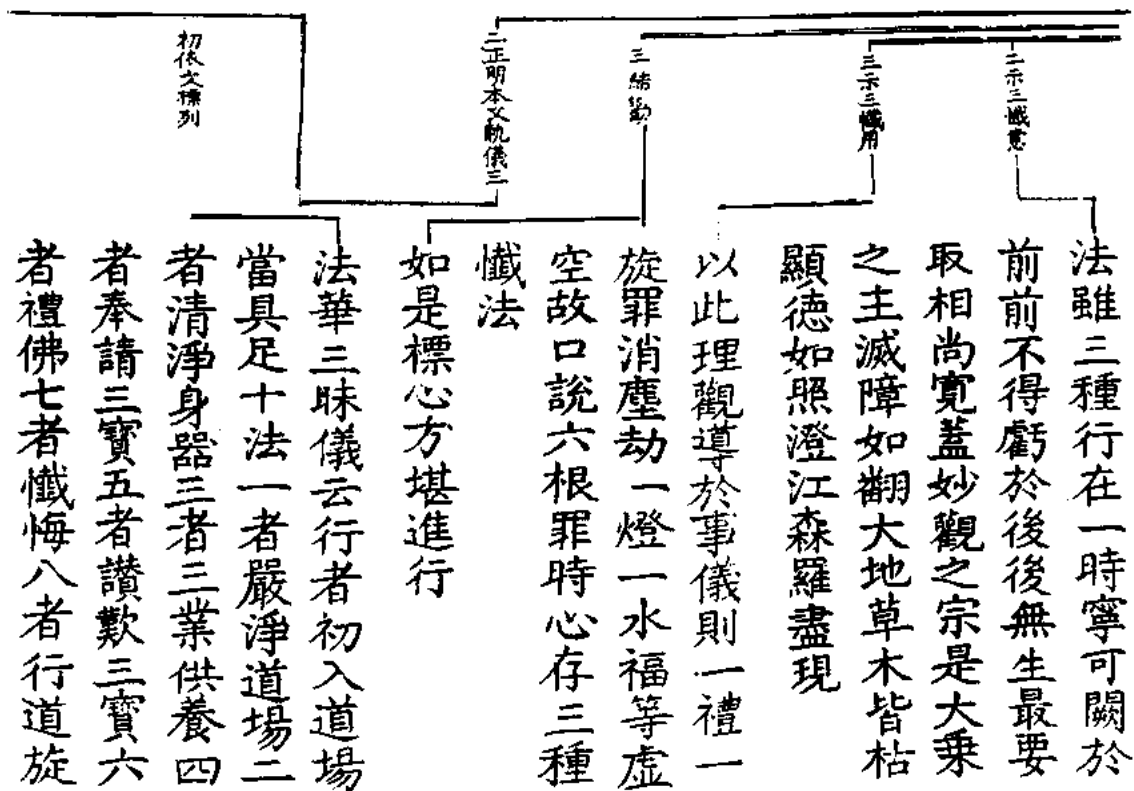 二示三懺意
法雖三種行在一時寧可闕於
前前不得虧於後後無生最要
取相尚寬蓋妙觀之宗是大乘
之主滅障如翻大地草木皆枯
顯德如照澄江森羅盡現
三示三懺用
以此理觀導於事儀則一禮一
旋罪消塵劫一燈一水福等虛
空故口說六根罪時心存三種
懺法
三結勸
如是標心方堪進行
二正明本文軌儀三
初依文標列
法華三昧儀云行者初入道場
當具足十法一者嚴淨道場二
者清淨身器三者三業供養四
者奉請三寶五者讚歎三寶六
者禮佛七者懺悔八者行道旋